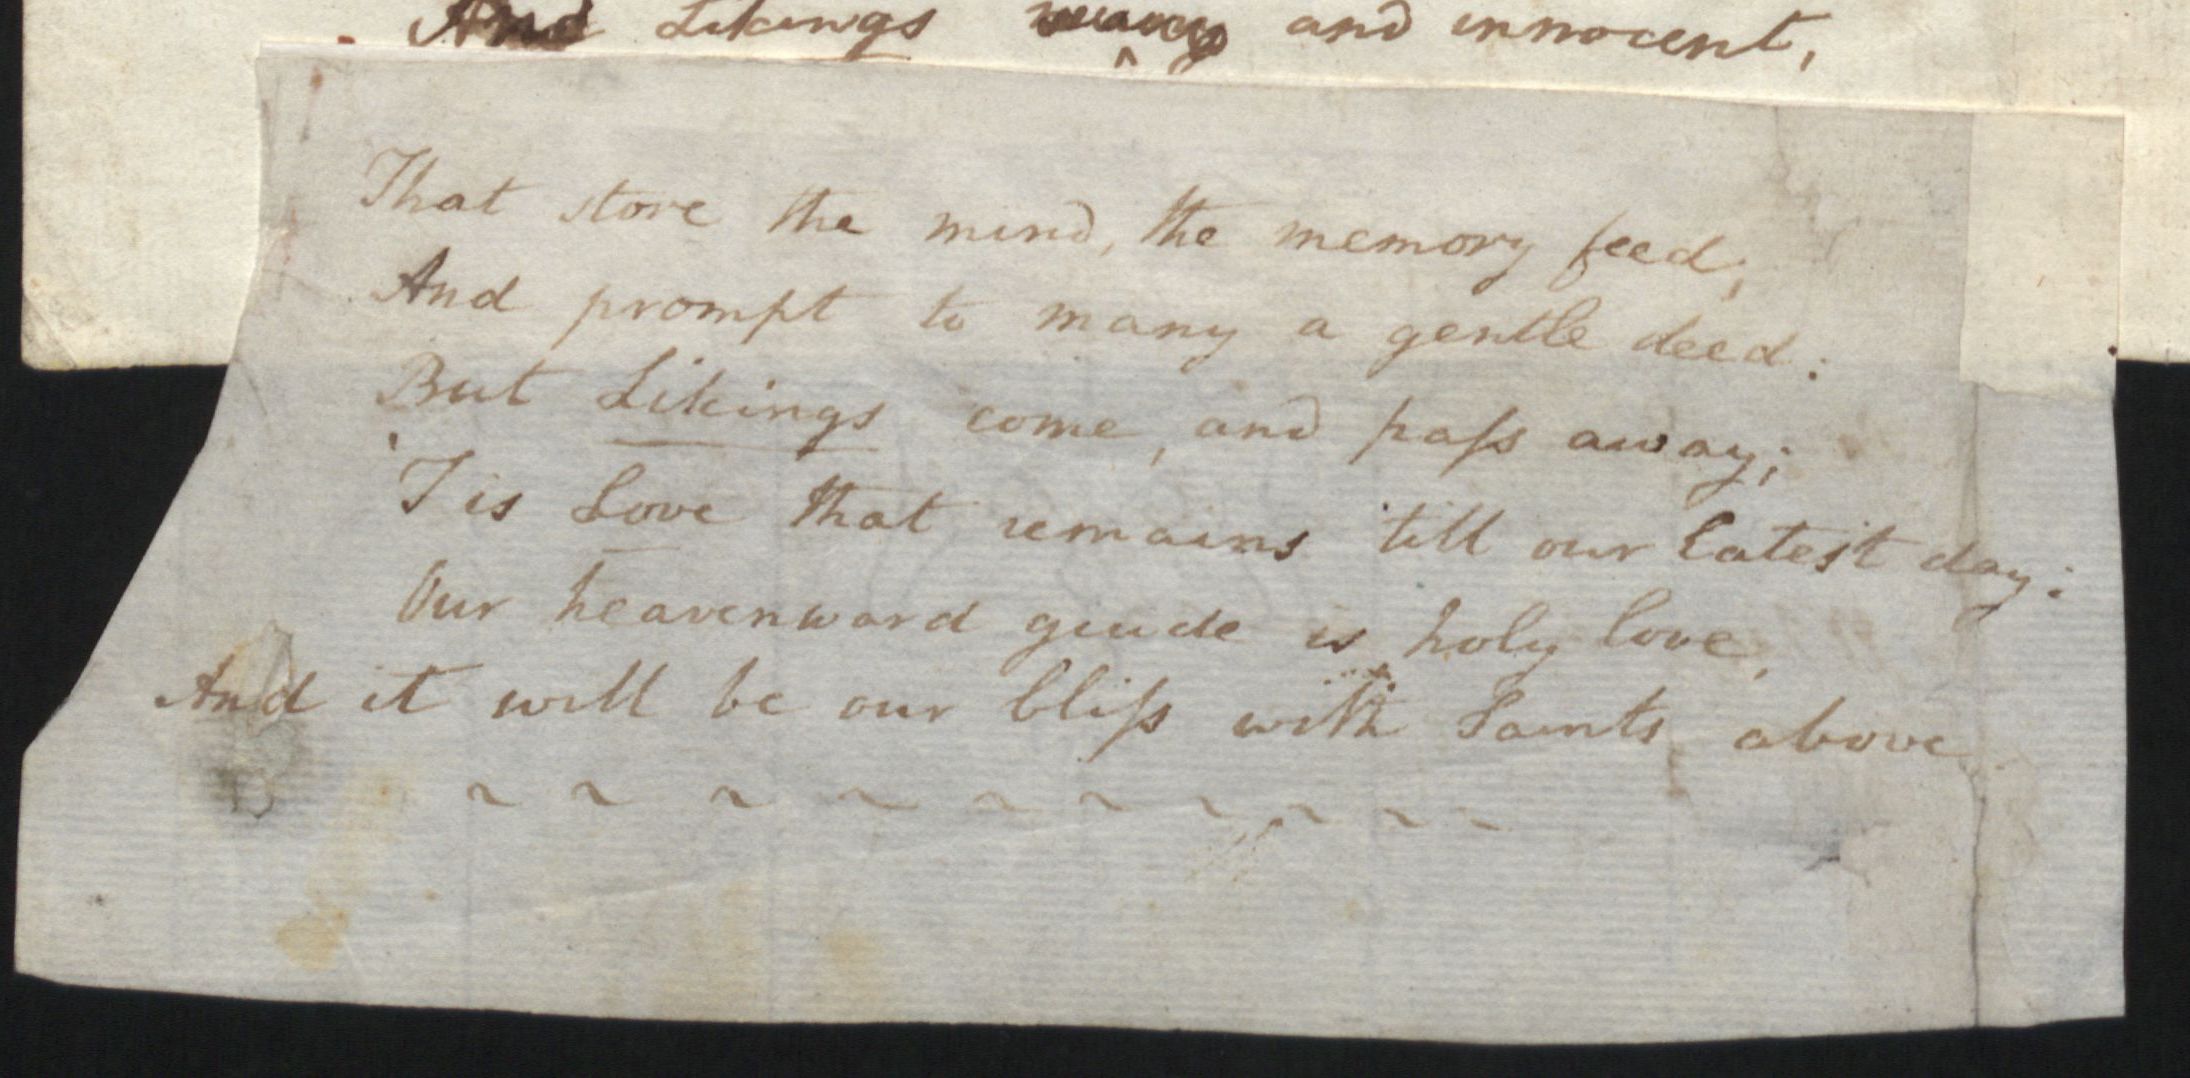 And Likings and innocent,
That store the mind, the memory feed,
And prompt to many a gentle deed:
But Likings come, and paſs away;
'Tis Love that remains 'till our latest day:
Our heavenward guide is holy love,
And it will be our bliſs with Saints above
~ ~ ~ ~ ~ ~ ~ ~ ~ ~